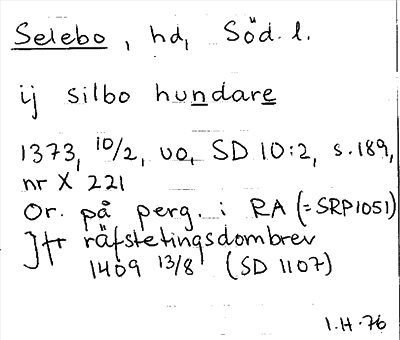 Selebo, hd, Söd. l.
ij silbo hundare
1373, 10/2, uo, SD 10:2, s.189,
nr X 221
Or. på perg. i RA (=SRP1051)
Jfr räfstetingsdombrev
1409 13/8 (SD 1107)
I.H-76